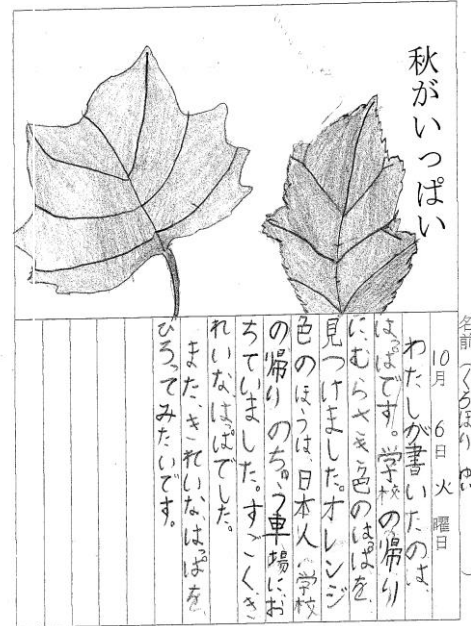 秋がいっぱい
名前(くろほり ゆい)
10月 6日 火曜日
わたしが書いたのは、
はっぱです。学校の帰り
に、むらさき色のはっぱを
見つけました。オレンジ
色のほうは、日本人学校
の帰りのちゅう車場にお
ちていました。すごくき
れいな、はっぱでした。
また、きれいなはっぱを
ひろってみたいです。